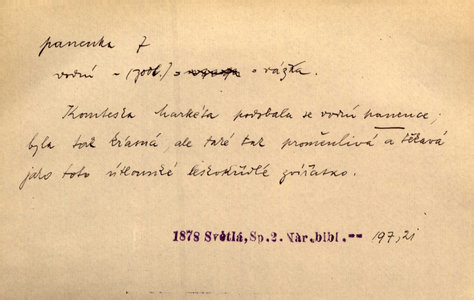 panenka 7
vodní – (podl.) o vážka.
Komteska Markéta podobala se vodní panence;
byla tak krásná, ale také tak proměnlivá a těkavá
jako toto útlounké leskokřídlé zvířátko.
1878 Světlá, Sp. 2. Nár. bibl. -- 197,21